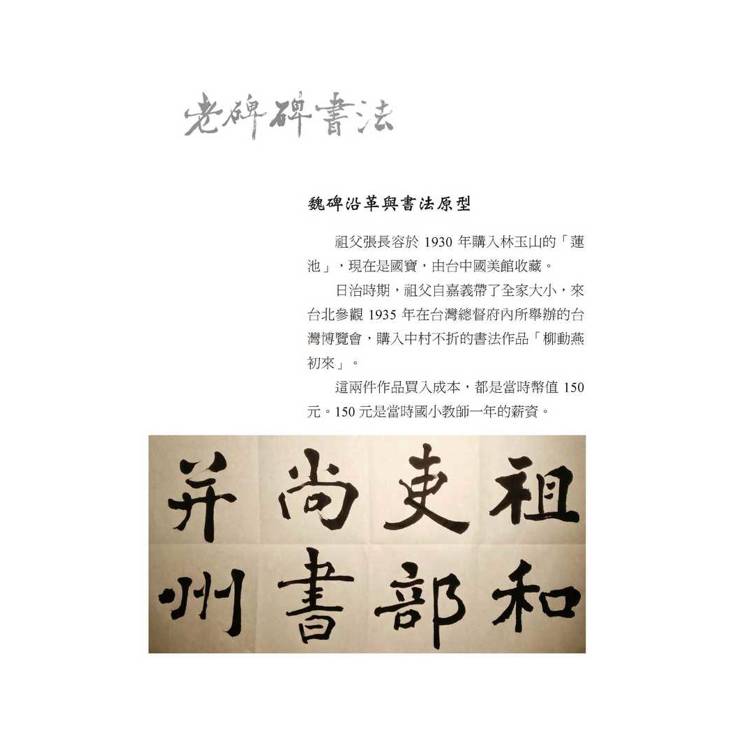 老碑碑書法
魏碑沿革與書法原型
祖父張長容於 1930 年購入林玉山的「蓮
池」，現在是國寶，由台中國美館收藏。
日治時期，祖父自嘉義帶了全家大小，來
台北參觀 1935 年在台灣總督府內所舉辦的台
灣博覽會，購入中村不折的書法作品「柳動燕
初來」。
這兩件作品買入成本，都是當時幣值 150
元。150 元是當時國小教師一年的薪資。
祖和
吏部
尚書
并州